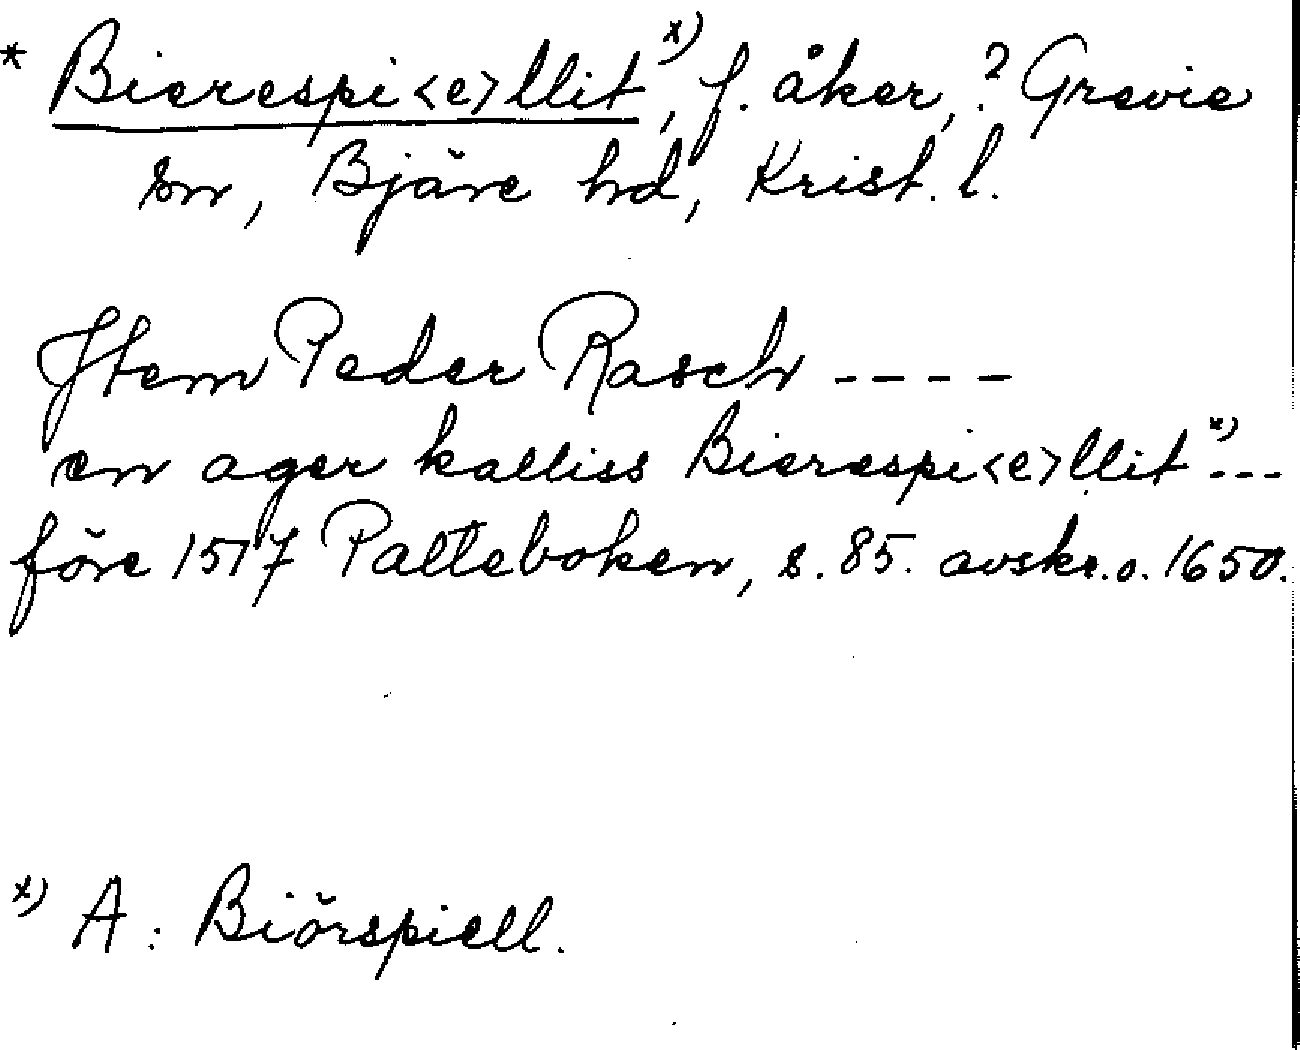 * Bierespi<e>llit x), f. åker, ? Grevie
sn, Bjäre hd, Krist. l.
Jtem Peder Rasch ----
en ager kalliss Bierespi<e>llit x) ---
före 1517 Palteboken, s. 85. avskr. o. 1650.
x) A: Biörspiell.